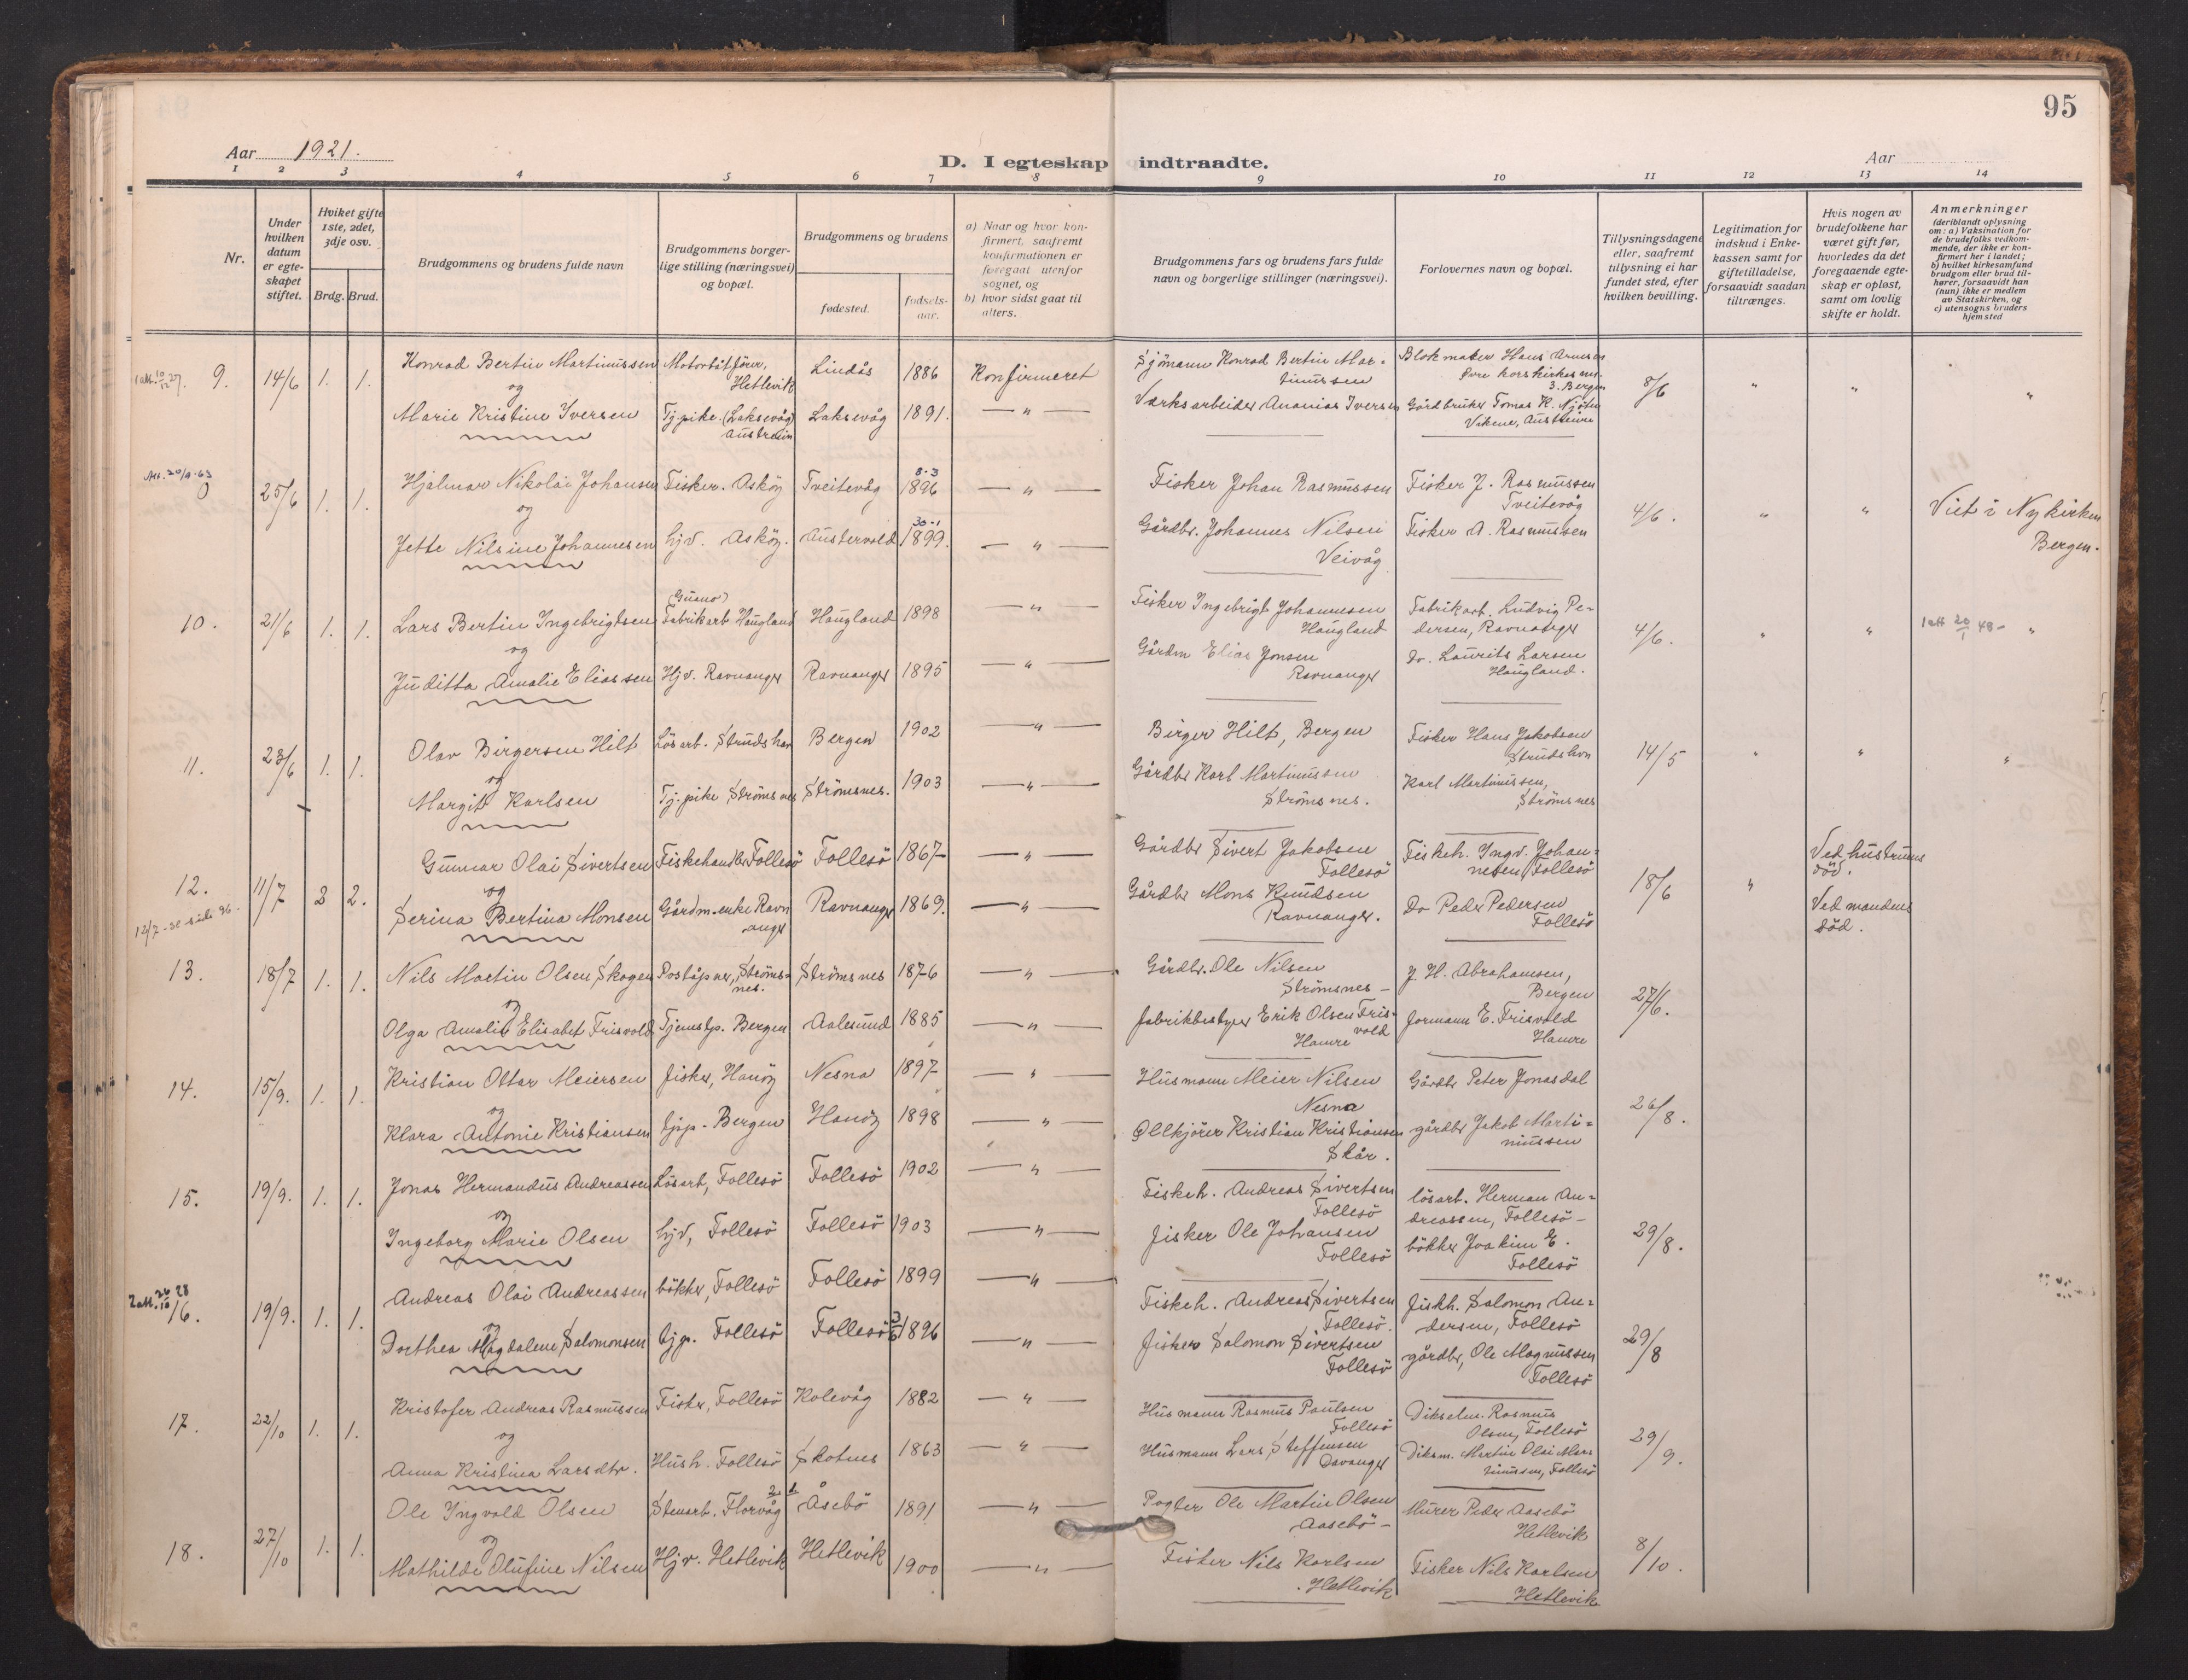 95
Aar 1921.
D. I egteskap indtraadte.
Aar
1 2 3 4 5 6 7 8 9 10 11 12 13 14
Nr.
Under hvilken datum er egteskapet stiftet.
Hviket gifte 1ste, 2det, 3dje osv.
Brdg. Brud.
Brudgommens og brudens fulde navn
Brudgommens borgerlige stilling (næringsvei) og bopæl.
Brudgommens og brudens
fødested.
fødselsaar.
a) Naar og hvor konfirmert, saafremt konfirmationen er foregaat utenfor sognet, og
b) hvor sidst gaat til alters.
Brudgommens fars og brudens fars fulde navn og borgerlige stillinger (næringsvei).
Forlovernes navn og bopæl.
Tillysningsdagene eller, saafremt tillysning ei har fundet sted, efter hvilken bevilling.
Legitimation for indskud i Enkekassen samt for giftetilladelse, forsaavidt saadan tiltrænges.
Hvis nogen av brudefolkene har været gift før, hvorledes da det foregaaende egteskap er opløst, samt om lovlig skifte er holdt.
Anmerkninger
(deriblandt oplysning om: a) Vaksination for de brudefolks vedkommende, der ikke er konfirmert her i landet; b) hvilket kirkesamfund brudgom eller brud tilhører, forsaavidt han (hun) ikke er medlem av Statskirken, og c) utensogns bruders hjemsted
1 att. 10/12 27. 9. 14/6 1. 1. Konrad Bertin Martinussen Motorbåtfører, Hetlevik Lindås 1886 Konfirmeret Sjömann Konrad Bertin Martinussen Blokmaker Hans Arnesen Øvre korskirkealm. 3. Bergen 8/6 " " "
og
Marie Kristine Iversen Tj.pike (Laksevåg) Austreim Laksevåg 1891. — " — Værksarbeider Ananias Iversen Gårdbruker Tomas K. Njøten Vikene, Austreim
Att. 20/9-63 0 25/6 1. 1. Hjalmar Nikolai Johansen Fisker. Asköy Tveitevåg 8-3 1896 — " — Fisker Johan Rasmussen Fisker J. Rasmussen Tveitevåg 4/6. " " Viet i Nykirken Bergen.
og
Jette Nilsine Johannesen hjv. Asköy. Austervold 30-1 1899. — " — Gårdbr. Johannes Nilsen Veivåg Fisker A. Rasmussen
10. 21/6 1. 1. Lars Bertin Ingebrigtsen (Guano) Fabrikarb Haugland Haugland 1898 — " — Fisker Ingebrigt Johannesen Haugland Fabrikarb. Ludvig Pedersen, Ravnanger 4/6. " " 1 att 20/1 48- "
og
Juditta Amalie Eliassen Hjv. Ravnanger Ravnanger 1895 — " — Gårdm Elias Jonsen Ravnanger Do. Laurits Larsen Haugland.
11. 23/6 1. 1. Olav Birgersen Hilt Lösarb. Strudshavn Bergen 1902 — " — Birger Hilt, Bergen Fisker Hans Jakobsen Strudshvn 14/5 " " "
og
Margit Karlsen Tj.pike Strömsnes Strömsnes. 1903 — " — Gårdbr Karl Martinussen Strömsnes. Karl Martinussen, Strömsnes
12. 11/7 2 2. Gunnar Olai Sivertsen Fiskehandler Follesö Follesö 1867 — " — Gårdbr Sivert Jakobsen Follesö Fiskeh. Ingv. Johannesen, Follesö 18/6 " Ved hustruens död.
12/7 - se side 96.
og
Serina Bertina Monsen Gårdm.enke Ravnanger Ravnanger 1869. — " — Gårdbr Mons Knudsen Ravnanger. Do Peder Pedersen Follesö Ved mandens död.
13. 18/7 1. 1. Nils Martin Olsen Skogen Poståpner, Strömsnes. Strömsnes 1876 — " — Gårdbr. Ole Nilsen Strömsnes – J. H. Abrahamsen, Bergen 27/6.
og
Olga Amalie Elisabet Frisvold Tjenstp. Bergen Aalesund 1885 — " — fabrikbestyrer Erik Olsen Frisvold Hamre formann E. Frisvold Hamre
14. 15/9. 1. 1. Kristian Ottar Meiersen fisker, Hanöy Nesna 1897 — " — Husmann Meier Nilsen Nesna Gårdbr Peter Jonasdal 26/8.
og
Klara Antonie Kristiansen tjp. Bergen Hanöy 1898 — " — Ølkjörer Kristian Kristiansen Skår. gårdbr Jakob Martinussen
15. 19/9. 1. 1. Jonas Hermandus Andreassen Lösarb, Follesö Follesö 1902 — " — Fiskeh. Andreas Sivertsen Follesö lösarb. Herman Andreassen, Follesö – 29/8.
og
Ingeborg Marie Olsen hjv, Follesö Follesö 1903 — " — fisker Ole Johansen Follesö bökker Joakim E. Follesö
2 att. 26/10 28 16. 19/9. 1. 1. Andreas Olai Andreassen bökker, Follesö Follesö 1899 — " — Fiskeh. Andreas Sivertsen Follesö. fiskh. Salomon Andersen, Follesö 29/8
og
Dorthea Magdalene Salomonsen tjp. Follesö Follesö 3/6 1896 — " — fisker Salomon Sivertsen Follesö gårdbr, Ole Magnussen Follesö
17. 22/10 1. 1. Kristofer Andreas Rasmussen Fisker, Follesö Kolevåg 1882 — " — Husmann Rasmus Paulsen Follesö Dikselm. Rasmus Olsen, Follesö 29/9.
og
Anna Kristina Larsdtr. Hush. Follesö Skotnes 1863 — " — Husmann Lars Steffensen Davanger Diksm. Martin Olai Martinussen, Follesö
18. 27/10 1. 1. Ole Ingvald Olsen Stenarb. Florvåg Åsebö 1891 — " — Pogter Ole Martin Olsen Aasebö – Murer Peder Aasebö Hetlevik 8/10.
og
Mathilde Olufine Nilsen Hjv. Hetlevik Hetlevik 1900 — " — Fisker Nils Karlsen Hetlevik Fisker Nils Karlsen Hetlevik